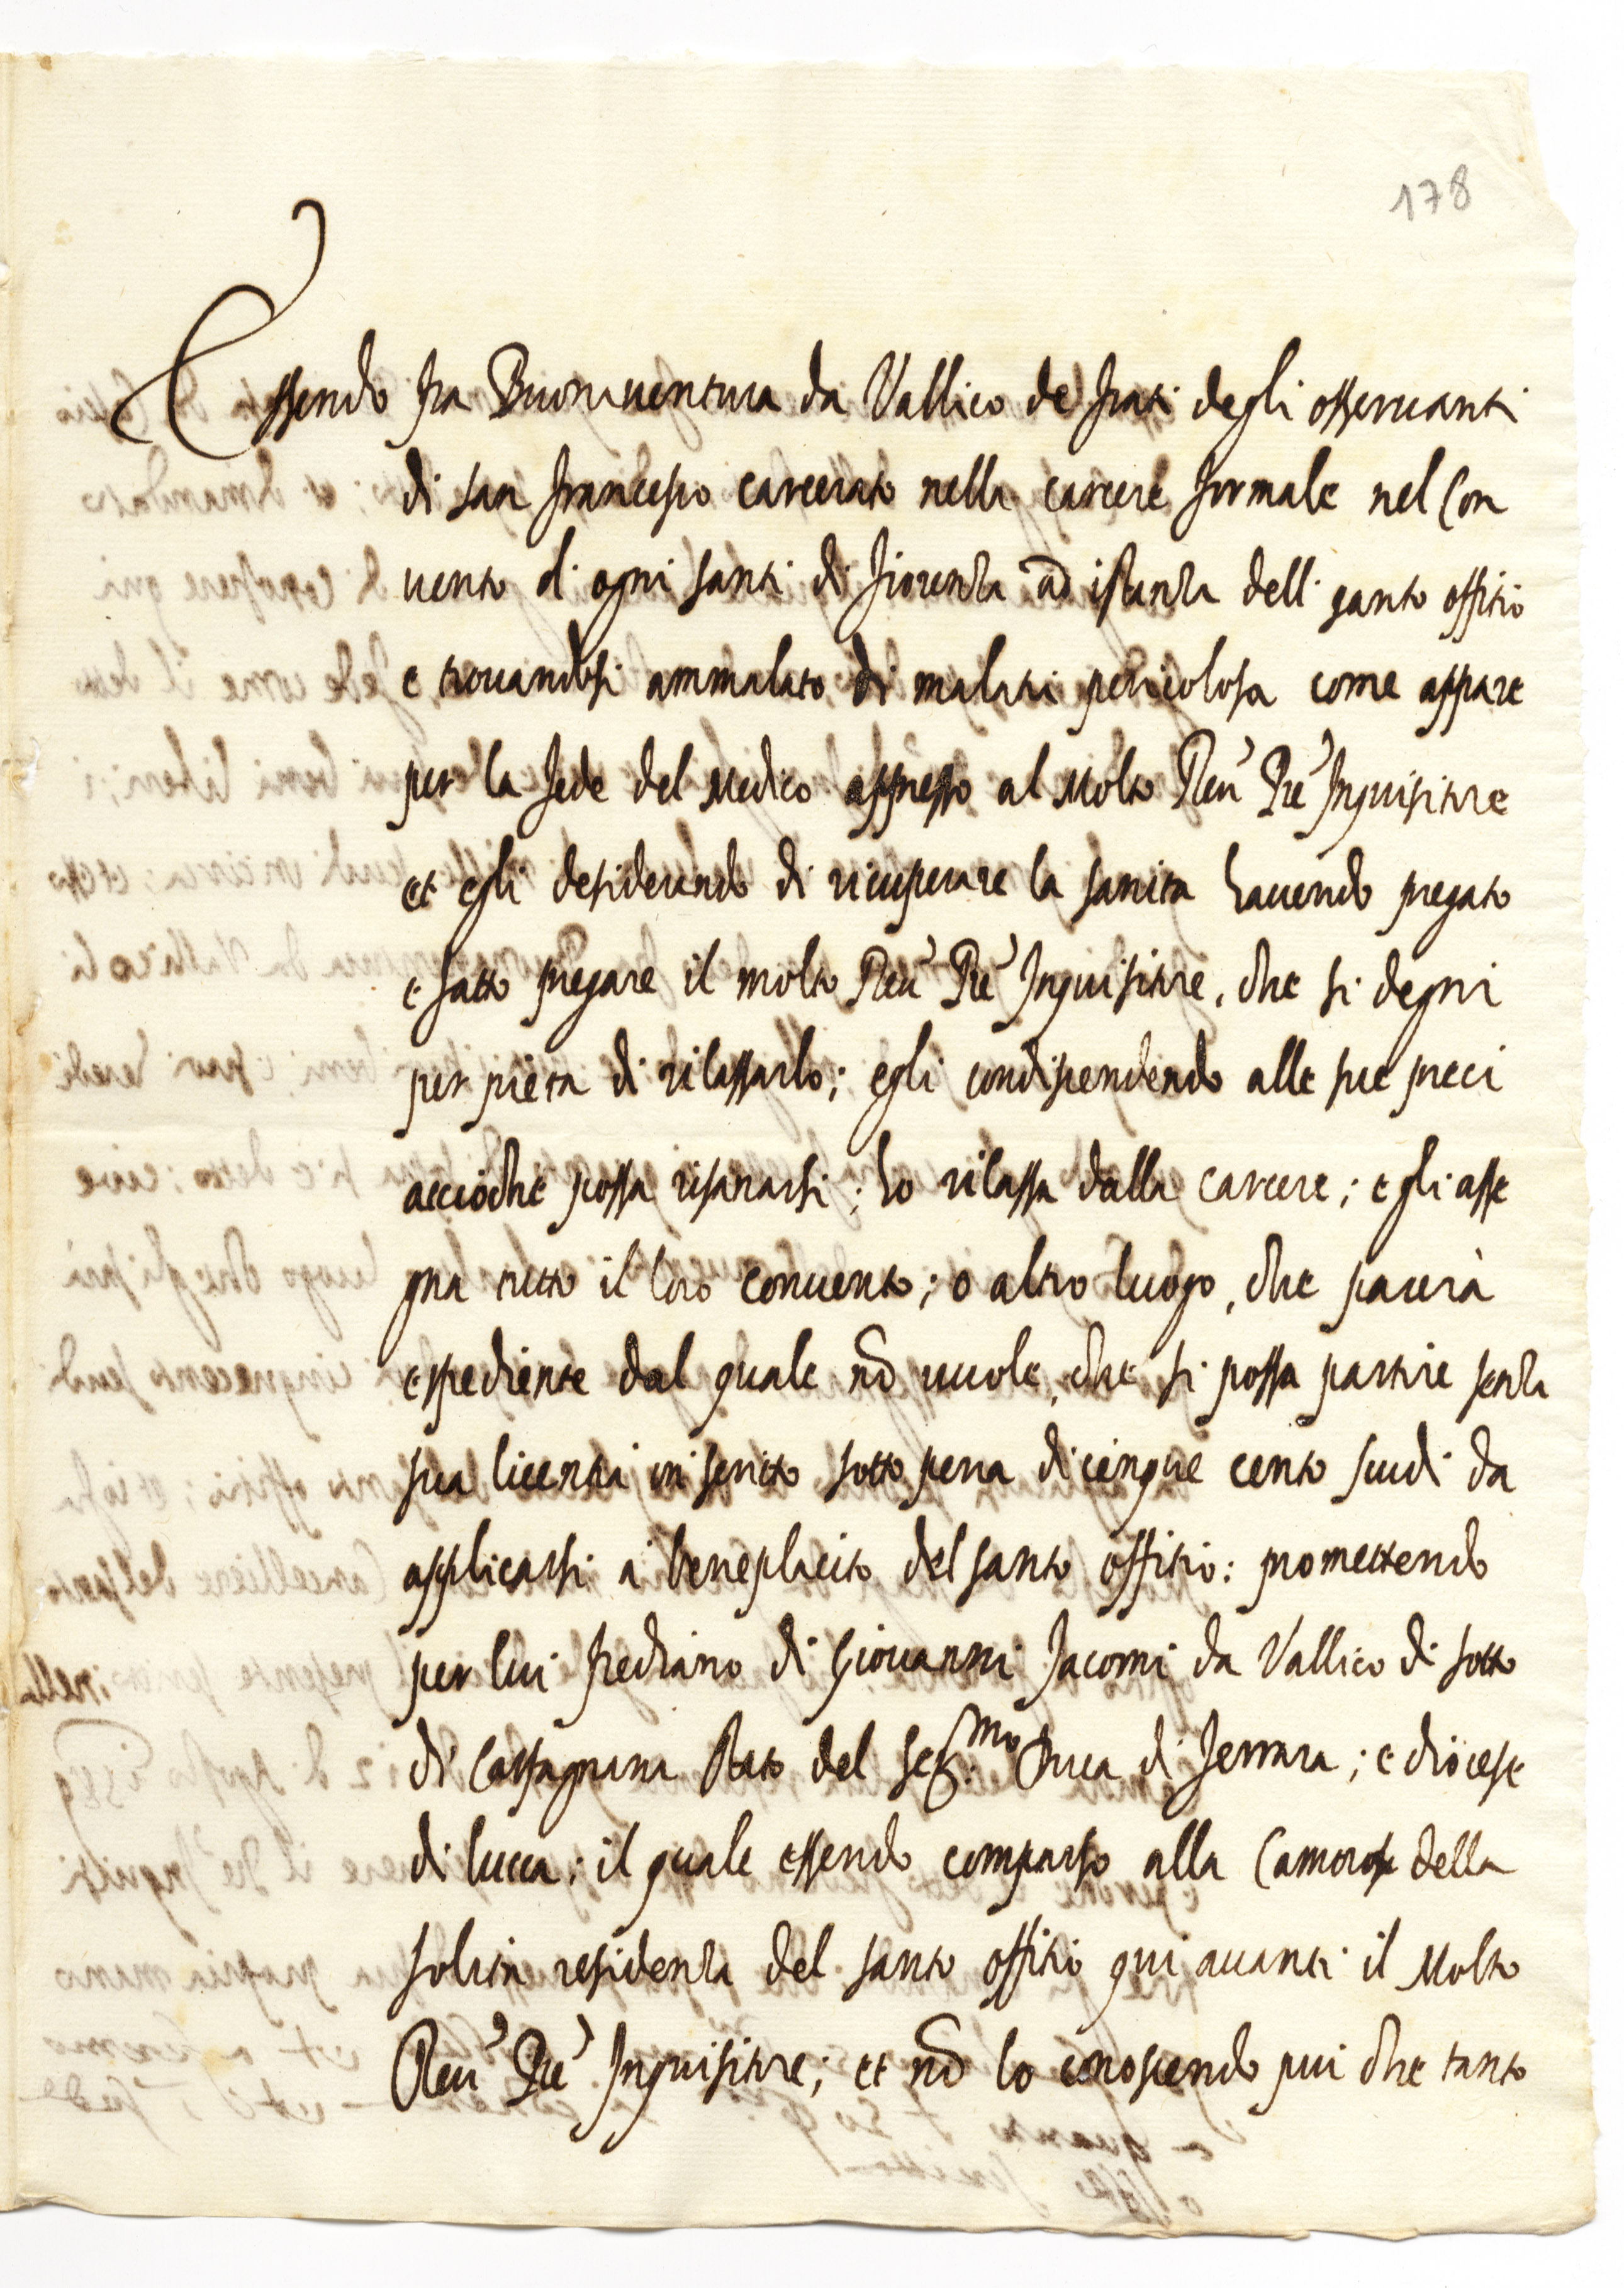 178
Essendo fra Buonauentura da Vallico de frati degli osseruanti
di san francesco carcerato nella carcere formale nel Con
uento d'ogni santi di fiorenza ad istanza dell santo offitio
e trouandosi ammalato di malatia pericolosa come appare
per la fede del Medico appresso al Molto Reu' Pre' Inquisitore
et egli desiderando di ricuperare la sanita hauendo pregato
e fatto pregare il molto Reu' Pre' Inquisitore, che si degni
per pieta di rilassarlo; egli condiscendendo alle sue preci
accioche possa risanarsi; lo rilassa dalla carcere; e gli asse
gna tutto il loro conuento; o altro luogo, che parerà
espediente dal quale nõ uuole, che si possa partire senza
sua licentia in scritto sotto pena di cinque cento scudi da
applicarsi a beneplacito del santo offitio: promettendo
per lui frediano di Giouanni Jacomi da Vallico di sotto
di Carfagnana stato del Ser.mo Duca di ferrara; e diocese
di lucca; il quale essendo comparso alla della
solita residenza del santo offitio qui auanti il Molto
Reu' Pre' Inquisitore; et nõ lo conoscendo piu che tanto